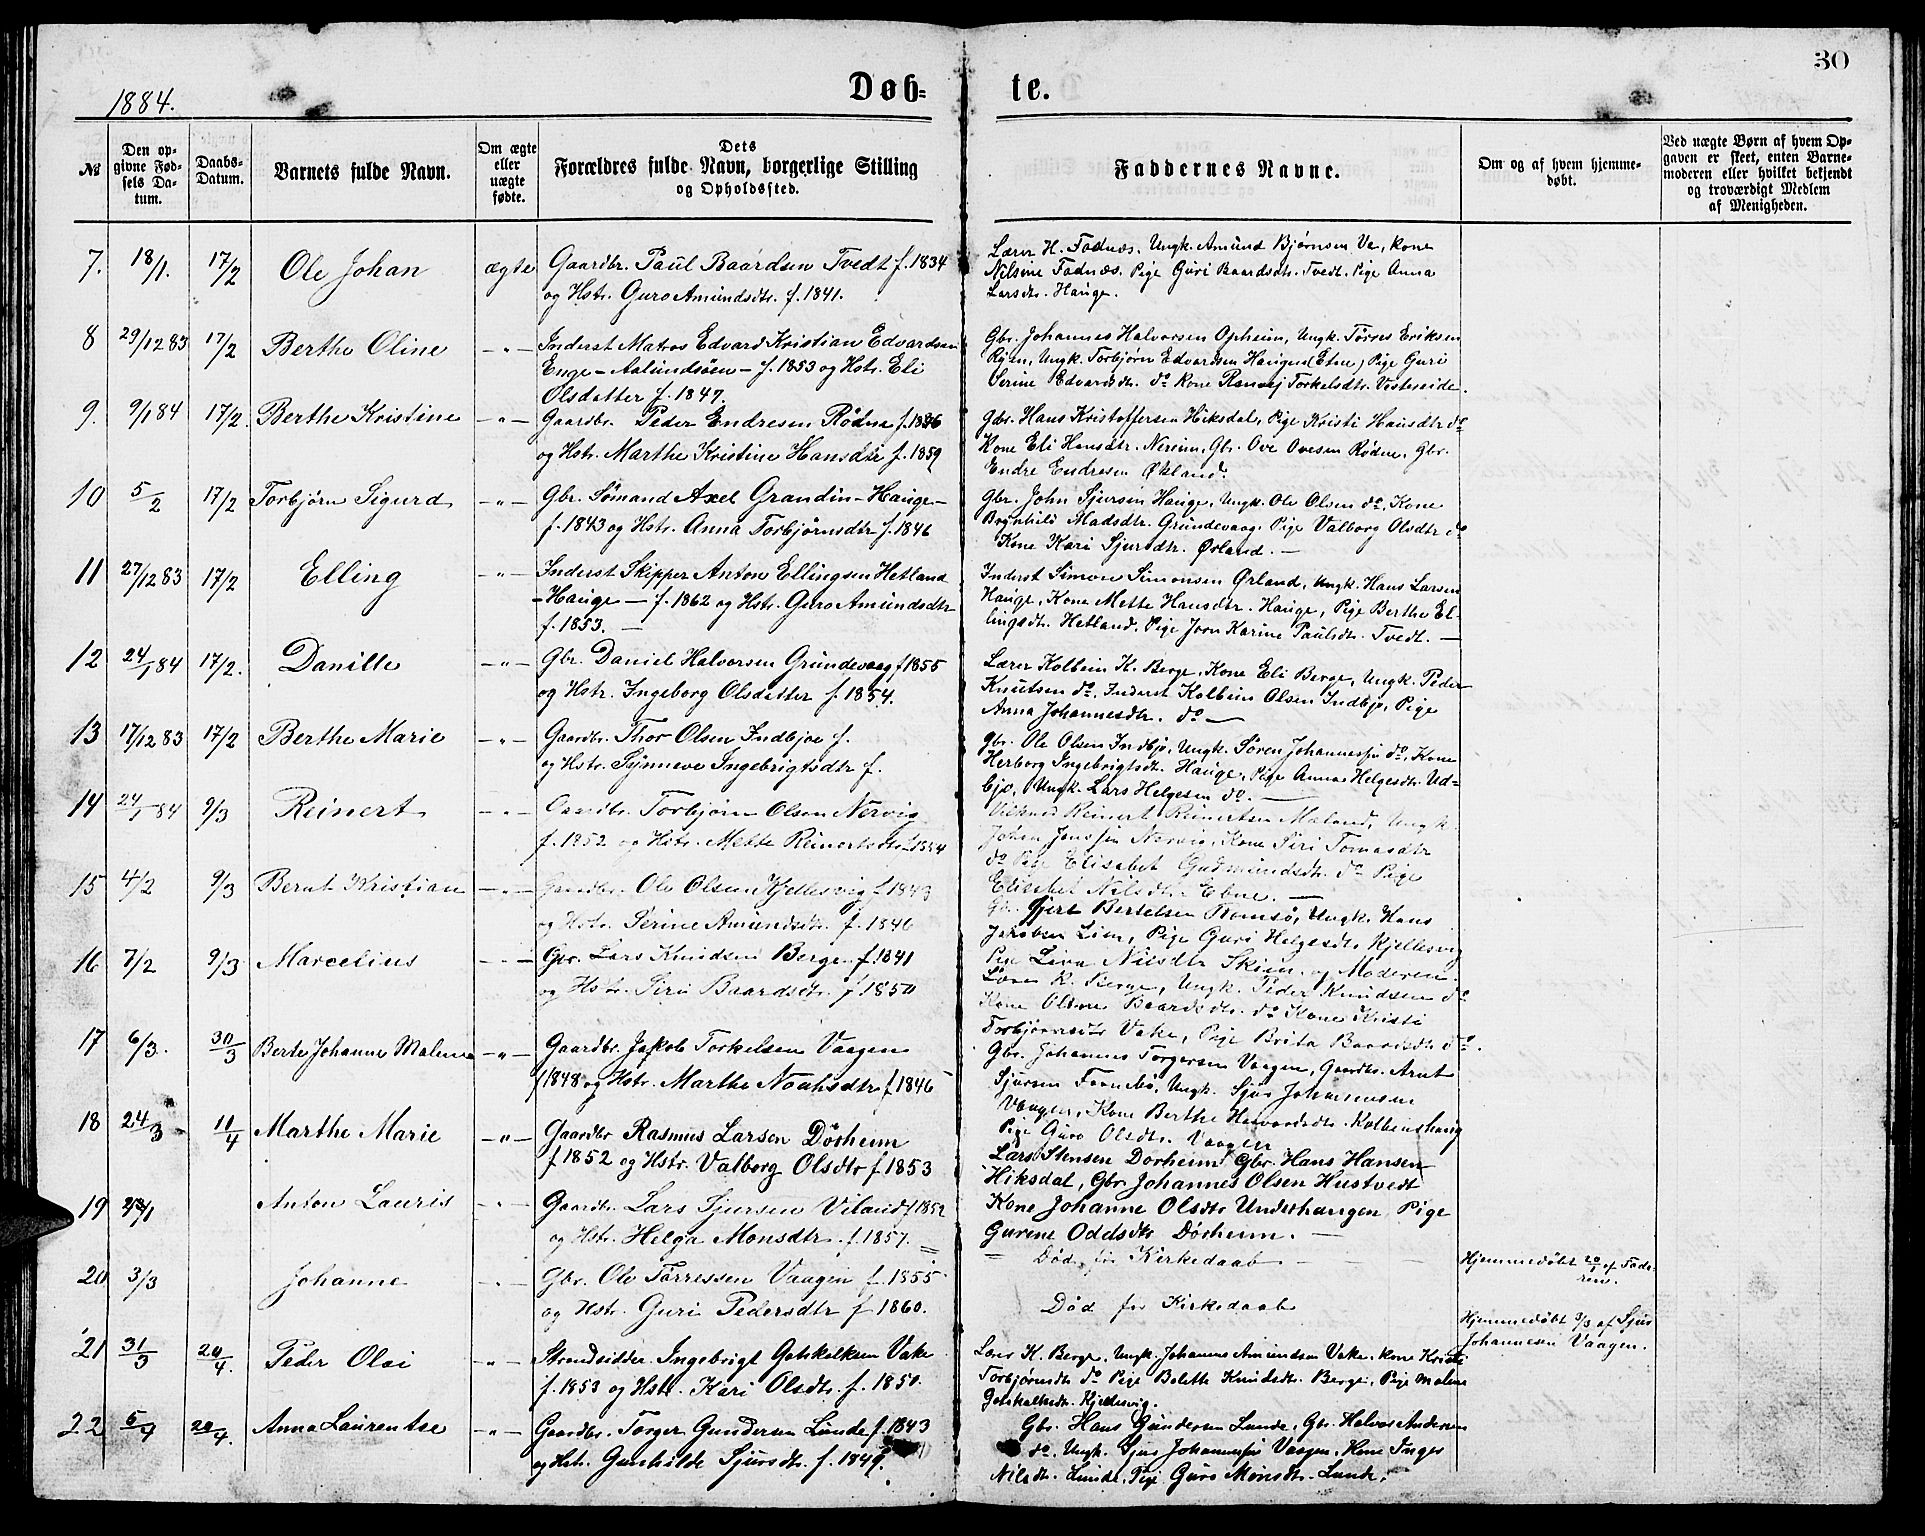 30
1884.
Døb- te.
№
Den opgivne Fødsels Datum.
Daabs-Datum.
Barnets fulde Navn.
Om ægte eller uægte fødte.
Dets Forældres fulde Navn, borgerlige Stilling og Opholdssted.
Faddernes Navne.
Om og af hvem hjemmedøbt.
Ved uægte Børn af hvem Opgaven er skeet, enten Barnemoderen eller hvilket bekjendt og troværdigt Medlem af Menigheden.
7. 18/1. 17/2 Ole Johan ægte Gaardbr. Paul Baardsen Tvedt f. 1834
og Hstr. Guro Amundsdtr. f. 1841.
Lærer H. Fadnæs. Ungk. Amund Bjørnsen Va, kone
Nilsine Fadnæs. Pige Guri Baardsdtr. Tvedt. Pige Anna
Larsdtr. Hauge.
8 29/12 83 17/2 Berthe Oline -"- Inderst Matros Edvard Kristian Edvardsen
Enge - Aalundsøen - f. 1853 og Hstr. Eli
Olsdatter f. 1847.
Gbr. Johannes Halvorsen Opheim, Ungk. Tørres Eriksen
Ungk. Torbjørn Edvardsen Haugen (Etne) Pige Guri
Serine Edvardsdtr. do Kone Ranvej Torkelsdtr. Vestereide.
9. 9/1 84 17/2. Berthe Kristine -"- Gaardbr. Peder Endresen Rødne f. 1886
og Hstr. Marthe Kristine Hansdtr f. 1859
Gbr. Hans Kristoffersen Hiksdal, Pige Kristi Hansdtr do
Kone Eli Hansdtr. Nereim, Gbr. Ove Ovesen Rødne, Gbr.
Endre Endresen Økland.
10 5/2 17/2 Torbjørn Sigurd -"- Gbr. Sømand Axel Grandin - Hauge -
f. 1843 og Hstr. Anna Torbjørnsdtr f. 1846
Gbr. John Sjursen Hauge, Ungk. Ole Olsen do, Kone
Brynhild Madsdtr. Grundevaag, Pige Valborg Olsdtr do
Kone Kari Sjursdtr. Ørland. -
11 27/12 83 17/2 Elling -"- Inderst Skipper Anton Ellingsen Hetland
- Hauge - f. 1862 og Hstr. Guro Amundsdtr
f. 1853. -
Inderst Simon Simonsen Ørland, Ungk. Hans Larsen
Hauge, Kone Mette Hansdtr. Hauge, Pige Berthe El-
lingsdtr. Hetland, Pige Jorn Karine Paulsdtr. Tvedt. -
12 24/1 84 17/2. Danille -"- Gbr. Daniel Halvorsen Grundevaag f 1855
og Hstr. Ingeborg Olsdatter f. 1854.
Lærer Kolbein K. Berge, Kone Eli Berge, Ungk. Peder
Knutsen do, Inderst Kolbein Olsen Indbjo, Pige
Anna Johannesdtr. do -
13 17/12 83 17/2 Berthe Marie -"- Gaardbr. Thor Olsen Indbjoe f.
og Hstr. Synneve Ingebrigtsdtr f.
Gbr. Ole Olsen Indbjo, Ungk. Søren Johannessen do, Kone
Herborg Ingebrigtsdtr. Hauge, Pige Anna Helgesdtr. Ud-
bjo, Ungk. Lars Helgesen do. -
14 24/1 84 9/3 Reinert -"- Gaardbr. Torbjørn Olsen Nervig
f. 1852 og Hstr. Mette Reinertsdtr f. 1854
Reinert Reinertsen Maland, Ungk.
Johan Jonssen Nervig, Kone Siri Tomasdtr
do Pige Elisabet Gudmundsdtr. do Pige
Elisabet Nilsdtr. Etne. -
15 4/2 9/3 Bernt Kristian -"- Gaardbr. Ole Olsen Kjellesvig f. 1843
og Hstr. Serine Amundsdtr. f. 1846
Gbr. Gjert Bertelsen Romsø, Ungk. Hans
Jakobsen Lien, Pige Guri Helgesdtr. Kjellesvig
Pige Lina Nilsdtr Skien, og Moderen.
16 7/2 9/3 Marcelius -"- Gbr. Lars Knudsen Berge f. 1841
og Hstr. Siri Baardsdtr. f. 1850
Lærer K. Berge, Ungk. Peder Knudsen do
Kone Oline Baardsdtr. do Kone Kristi
Torbjørnsdtr Vake, Pige Brita Baardsdtr do.
17 6/3. 30/3 Berte Johanne Malene -"- Gaardbr. Jakob Torkelsen Vaagen
f 1848 og Hstr. Marthe Noahsdtr f 1846
Gbr. Johannes Torgersen Vaagen, Gaardbr. Arnt
Sjursen Ungk. Sjur Johannesen
Vaagen, Kone Berthe Havardsdtr. Kolbeinshaug
Pige Guro Olsdtr. Vaagen
18 24/3 11/4 Marthe Marie -"- Gaardbr Rasmus Larsen Dørheim
f 1852 og Hstr. Valborg Olsdtr f 1853
Lars Stensen Dorheim Gbr. Hans Hansen
Hiksdal, Gbr Johannes Olsen Hustvedt
Kone Johanne Olsdtr Underhaugen Pige
Gurine Oddsdtr Dørheim. -
19 Anton Lauris -"- Gaardbr. Lars Sjursen Viland f 1852
og Hstr. Helga Monsdtr. f. 1857.
Død før Kirkedaab
Hjemmedøbt 20/1 af Fade-
ren.
20 3/3 Johanne -"- Gbr. Ole Tørressen Vaagen f. 1855
og Hstr. Guri Pedersdtr f 1860.
Død før Kirkedaab
Hjemmedøbt 3/3 af Sjur
Johannesen Vaagen.
21 31/3 20/4 Peder Olai -"- Strandsidder Ingebrigt Gotskalksen Vake
f. 1853 og Hstr. Kari Olsdtr. f. 1850.
Lærer K. Berge, Ungk. Johannes Amundsen Vake, Kone Kristi
Torbjørnsdtr do Pige Bolette Knudsdtr. Berge, Pige Malene
Gotskalksdtr. Kjellesvig.
22 5/4 20/4. Anna Laurentse -"- Gaardbr. Torger Gundersen Lunde f. 1843
og Hstr. Gunhilde Sjursdtr. f. 1849.
Gbr. Hans Gundersen Lunde, Gbr. Halvor Andersen
do. Ungk. Sjur Johannessen Vaagen, Kone Inger
Nilsdtr. Lunde, Pige Guro Monsdtr. Lunde.